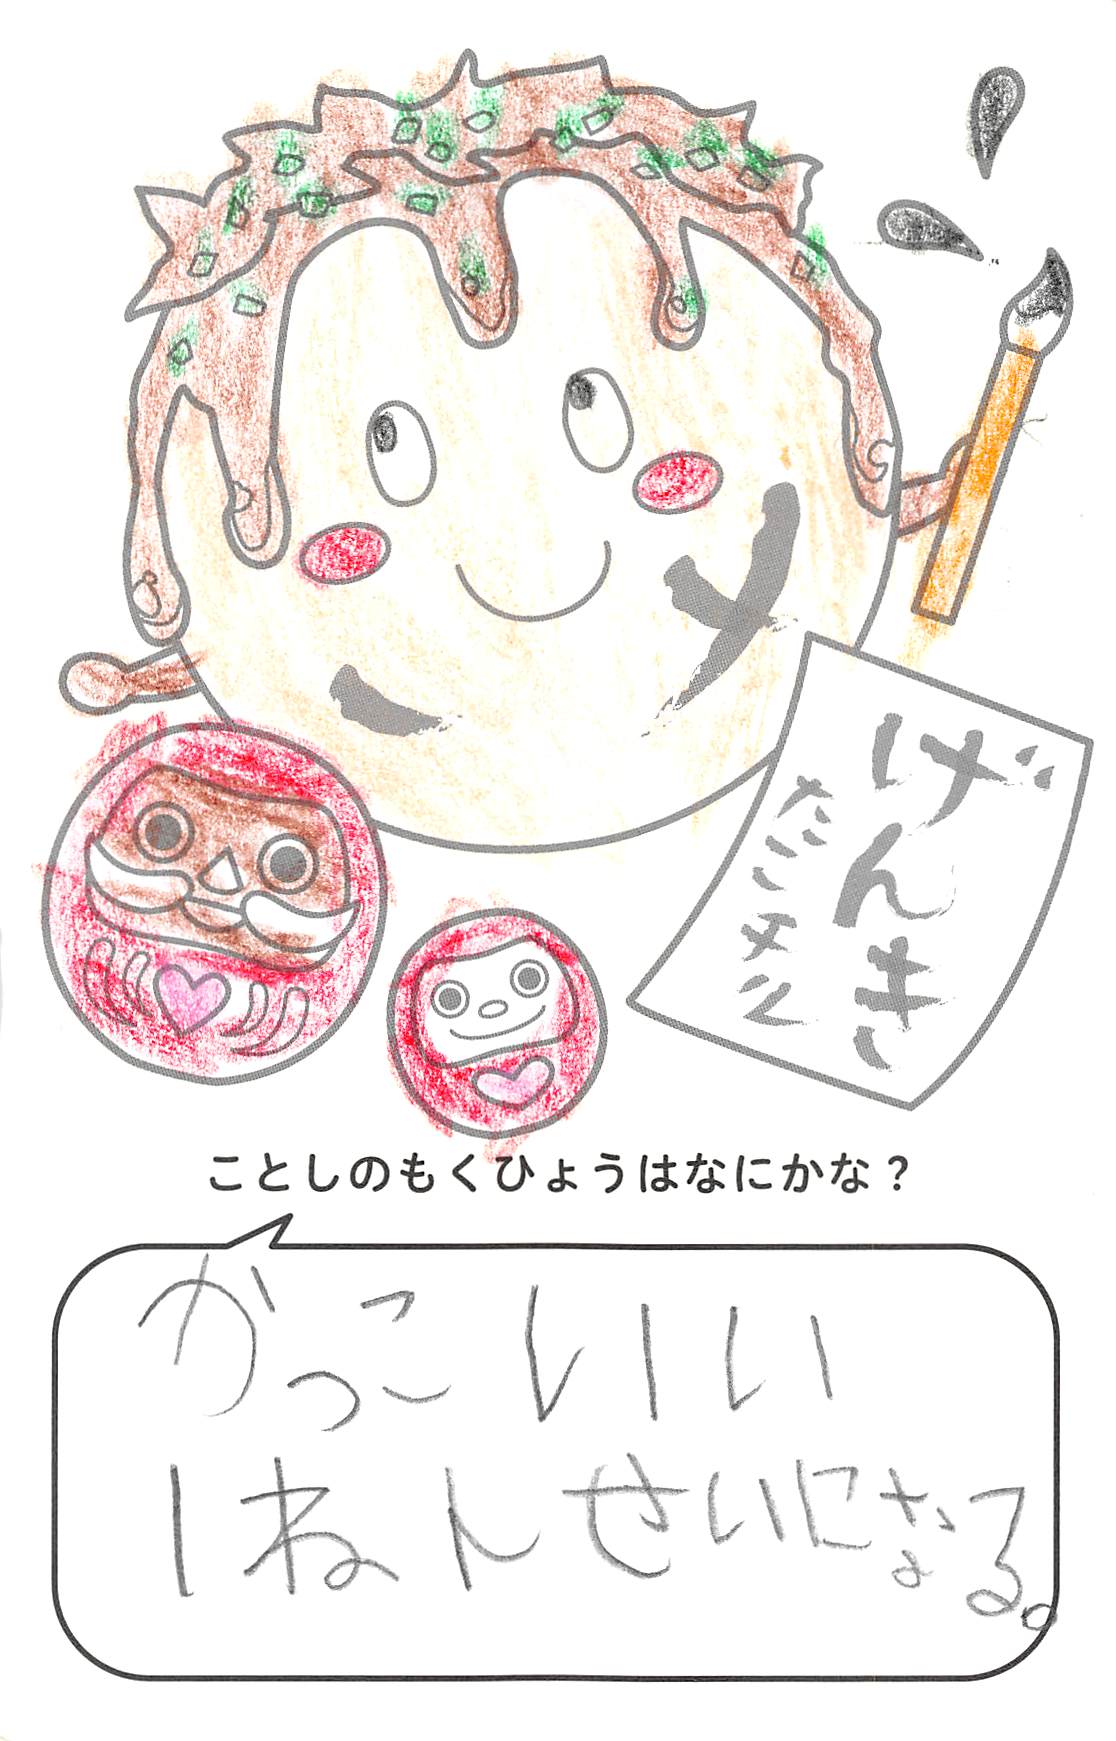 げんき
たこメン
ことしのもくひょうはなにかな？
がっこいい
1ねんせいになる。